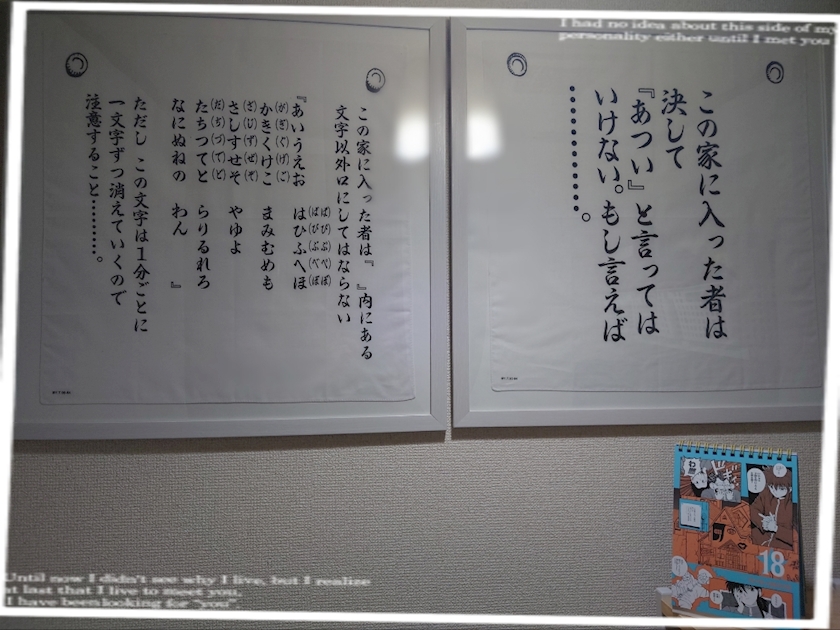 I had no idea about this side of my
personality either until I met you
この家に入った者は
決して
『あつい』と言っては
いけない。もし言えば
…………。
この家に入った者は『　』内にある
文字以外口にしてはならない
(ぱぴぷぺぽ)
(ばびぶべぼ)
『あいうえお　はひふへほ
(がぎぐげご)
かきくけこ　まみむめも
(ざじずぜぞ)
さしすせそ　やゆよ
(だぢづでど)
たちつてと　らりるれろ
なにぬねの　わん　』
ただし この文字は1分ごとに
一文字ずつ消えていくので
注意すること…………。
18
Until now I didn't see why I live, but I realize
at last that I live to meet you.
I have been looking for "you".